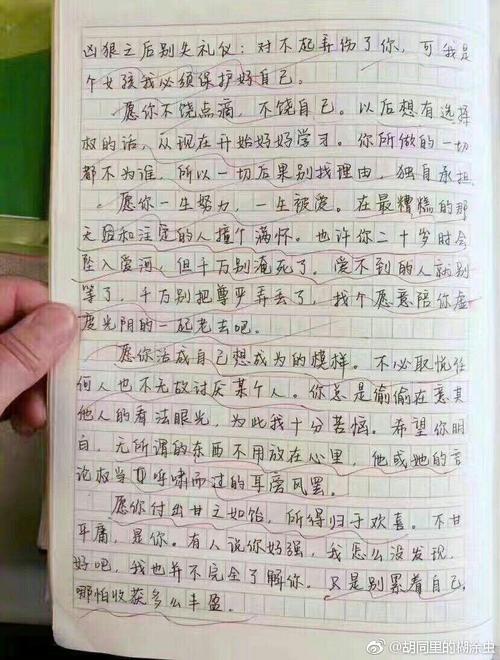 凶狠之后别失礼仪：对不起弄伤了你，可我是
个女孩我必须保护好自己。
愿你不饶点滴，不饶自己。以后想有选择
权的话，从现在开始好好学习。你所做的一切
都不为谁，所以一切后果别找理由，独自承担。
愿你一生努力，一生被爱。在最糟糕的那
天跟和注定的人撞个满怀。也许你二十岁时会
坠入爱河，但千万别淹死了。爱不到的人就别
等了，千万别把尊严弄丢了，找个愿意陪你虚
度光阴的一起老去吧。
愿你活成自己想成为的模样。不必取悦任
何人也不无故讨厌某个人。你总是偷偷在意其
他人的看法眼光，为此我十分苦恼。希望你明
白，无所谓的东西不用放在心里，他或她的言
论权当呼啸而过的耳旁风罢。
愿你付出甘之如饴，所得归于欢喜。不甘
平庸，是你。有人说你好强，我怎么没发现，
好吧，我也并不完全了解你。只是别累着自己，
哪怕收获多么丰盈。
@胡同里的糊涂虫